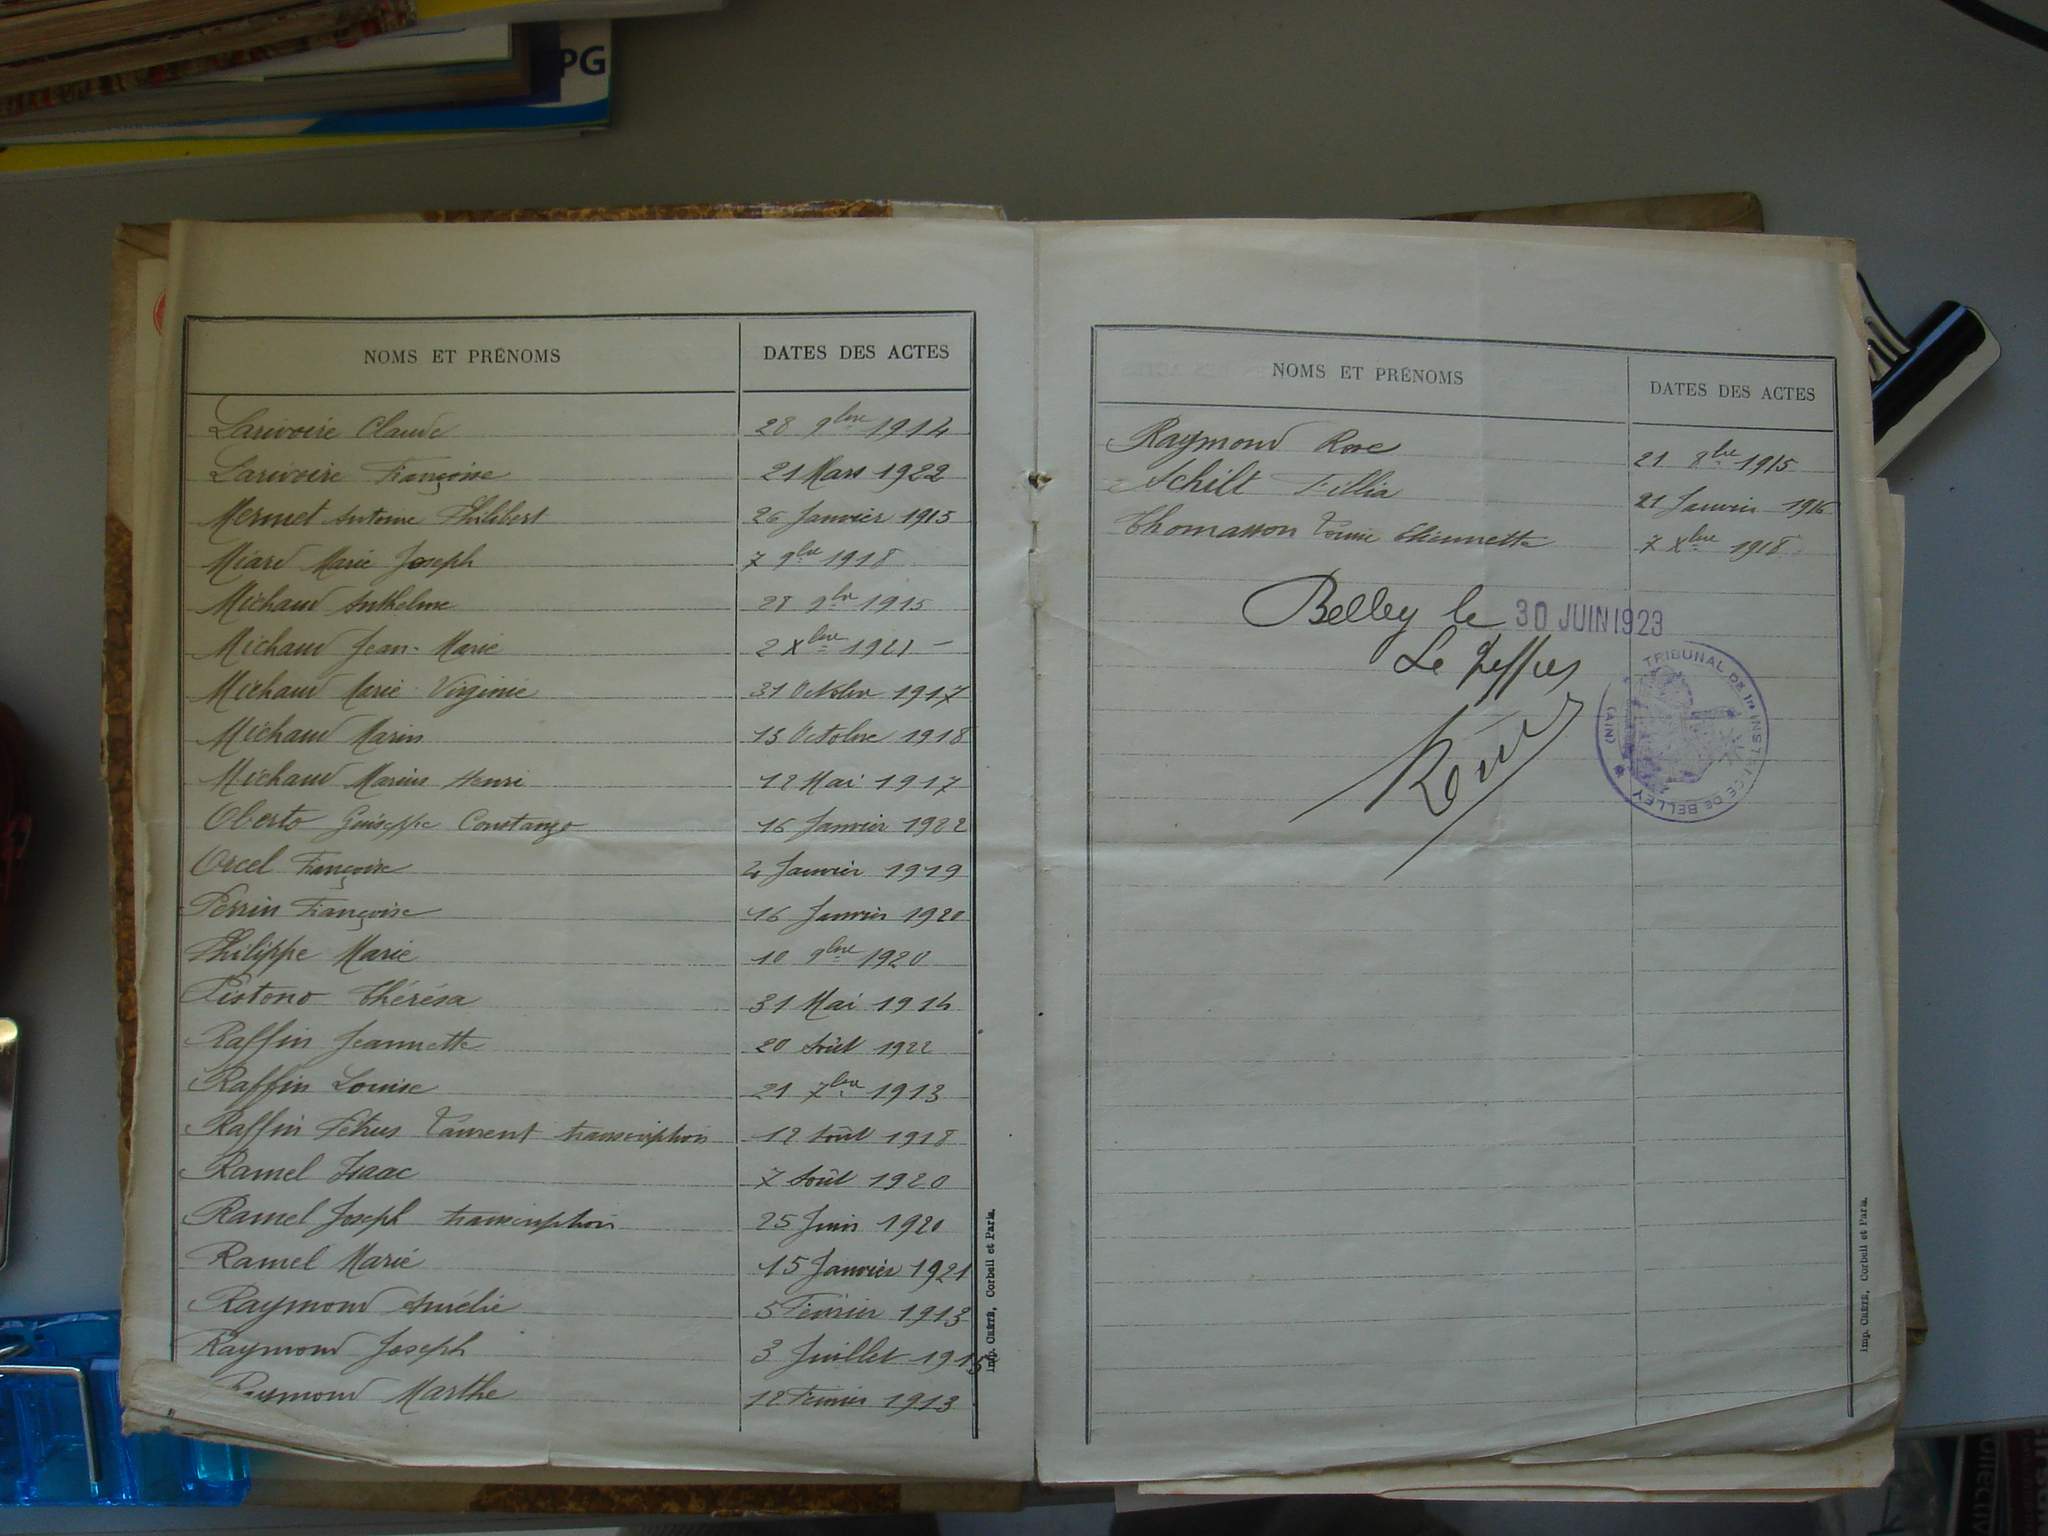 PG
NOMS ET PRÉNOMS DATES DES ACTES
Larivoire Claude 28 9bre 1914
Larivoire Françoise 21 Mars 1922
Mermet Antoine Philibert 26 Janvier 1915
Miard Marie Joseph 7 9bre 1918
Michaud Anthelme 28 9bre 1915
Michaud Jean-Marie 2 Xbre 1921
Michaud Marie Virginie 31 Octobre 1917
Michaud Marin 15 Octobre 1918
Michaud Marius Henri 12 Mai 1917
Oberto Guiseppe Constanzo 16 Janvier 1922
Orcel Françoise 4 Janvier 1919
Perrin Françoise 16 Janvier 1920
Philippe Marie 10 9bre 1920
Pistono Thérésa 31 Mai 1914
Raffin Jeannette 20 Août 1922
Raffin Louise 21 7bre 1913
Raffin Pétrus Laurent transcription 12 Août 1918
Ramel Isaac 7 Août 1920
Ramel Joseph transcription 25 Juin 1920
Ramel Marie 15 Janvier 1921
Raymond Amélie 5 Février 1913
Raymond Joseph 3 Juillet 1915
Raymond Marthe 12 Février 1913
Imp. CRÉTÉ, Corbeil et Paris.
NOMS ET PRÉNOMS DATES DES ACTES
Raymond Rose 21 8bre 1915
Schilt Fillia 21 Janvier 1916
Thomasson Louise Etiennette 7 Xbre 1918
Belley le 30 JUIN 1923
Le Greffier
TRIBUNAL DE 1re INSTANCE DE BELLEY
(AIN)
Imp. CRÉTÉ, Corbeil et Paris.